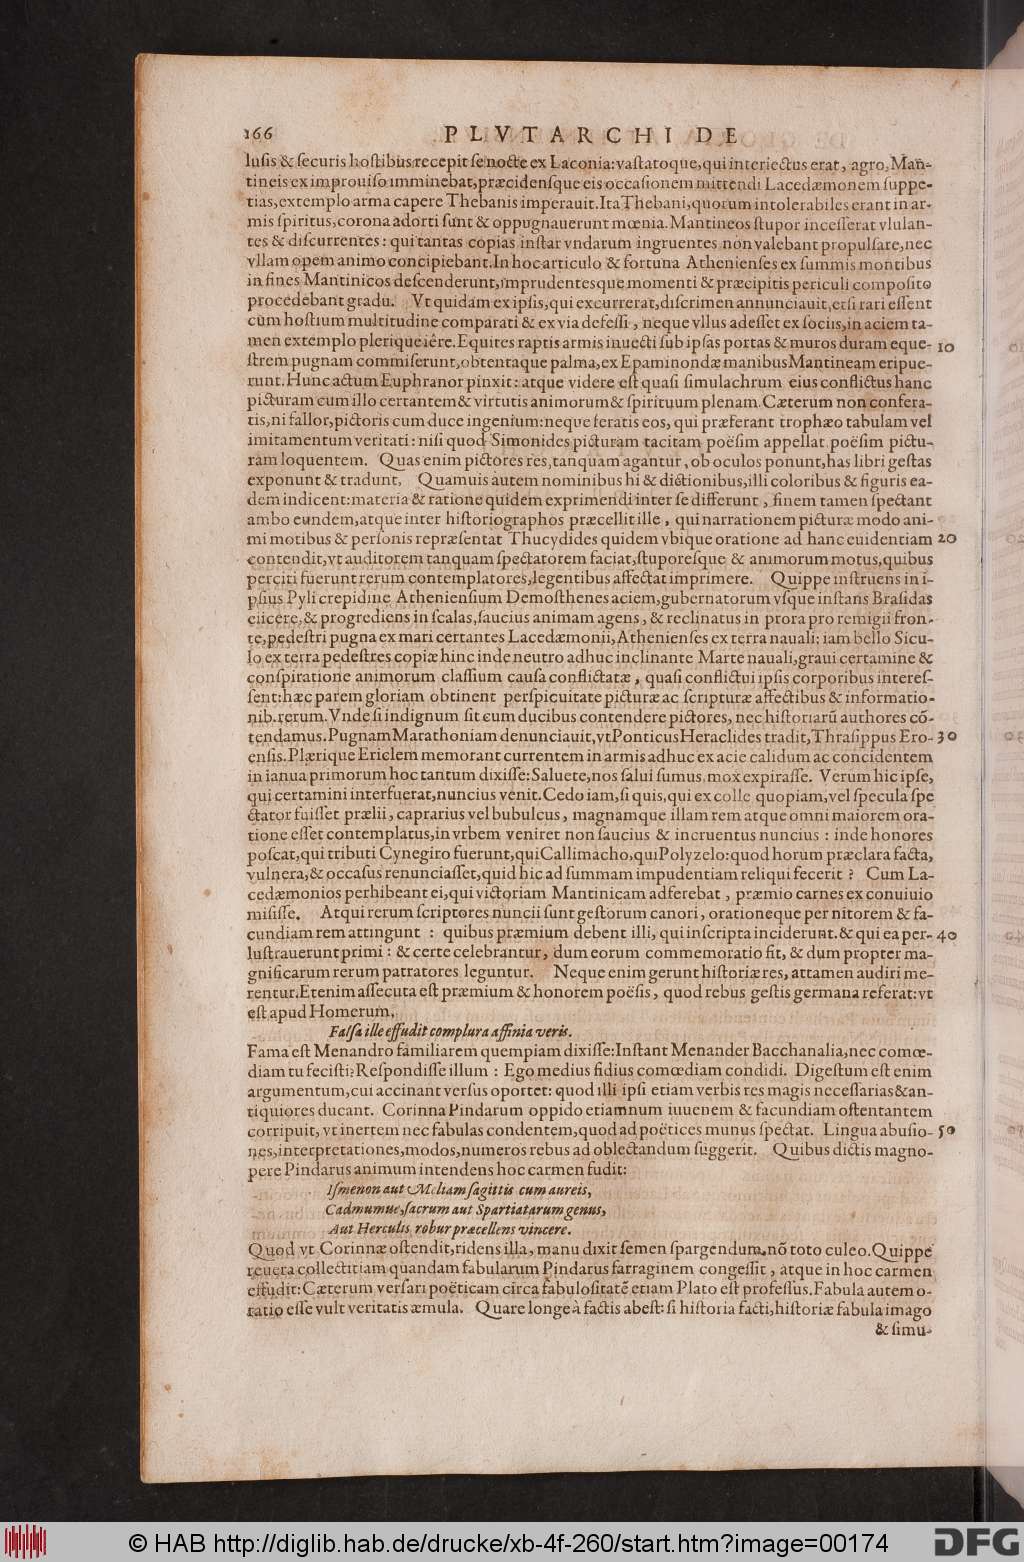 166 PLVTARCHI DE
luſis & ſecuris hoſtibus recepit ſe nocte ex Laconia: vaſtatoque, qui interiectus erat, agro, Man-
tineis ex improuiſo imminebat, præcidenſque eis occaſionem mittendi Lacedæmonem ſuppe-
tias, extemplo arma capere Thebanis imperauit. Ita Thebani, quorum intolerabiles erant in ar-
mis ſpiritus, corona adorti ſunt & oppugnauerunt mœnia. Mantineos ſtupor inceſſerat vlulan-
tes & diſcurrentes: qui tantas copias inſtar vndarum ingruentes non valebant propulſare, nec
vllam opem animo concipiebant. In hoc articulo & fortuna Athenienſes ex ſummis montibus
in fines Mantinicos deſcenderunt, imprudentesque momenti & præcipitis periculi compoſito
procedebant gradu. Vt quidam ex ipſis, qui excurrerat, diſcrimen annunciauit, etſi rari eſſent
cum hoſtium multitudine comparati & ex via defeſſi, neque vllus adeſſet ex ſociis, in aciem ta-
men extemplo plerique iêre. Equites raptis armis inuecti ſub ipſas portas & muros duram eque- 10
ſtrem pugnam commiſerunt, obtentaque palma, ex Epaminondæ manibus Mantineam eripue-
runt. Hunc actum Euphranor pinxit: atque videre eſt quaſi ſimulachrum eius conflictus hanc
picturam cum illo certantem & virtutis animorum & ſpirituum plenam. Cæterum non confera-
tis, ni fallor, pictoris cum duce ingenium: neque feratis eos, qui præferant trophæo tabulam vel
imitamentum veritati: niſi quod Simonides picturam tacitam poëſim appellat. poëſim pictu-
ram loquentem. Quas enim pictores res, tanquam agantur, ob oculos ponunt, has libri geſtas
exponunt & tradunt. Quamuis autem nominibus hi & dictionibus, illi coloribus & figuris ea-
dem indicent: materia & ratione quidem exprimendi inter ſe differunt, finem tamen ſpectant
ambo eundem, atque inter hiſtoriographos præcellit ille, qui narrationem picturæ modo ani-
mi motibus & perſonis repræſentat Thucydides quidem vbique oratione ad hanc euidentiam 20
contendit, vt auditorem tanquam ſpectatorem faciat, ſtuporeſque & animorum motus, quibus
perciti fuerunt rerum contemplatores, legentibus affectat imprimere. Quippe inſtruens in i-
pſius Pyli crepidine Athenienſium Demoſthenes aciem, gubernatorum vſque inſtans Braſidas
eiicere, & progrediens in ſcalas, ſaucius animam agens, & reclinatus in prora pro remigii fron-
te, pedeſtri pugna ex mari certantes Lacedæmonii, Athenienſes ex terra nauali: iam bello Sicu-
lo ex terra pedeſtres copiæ hinc inde neutro adhuc inclinante Marte nauali, graui certamine &
conſpiratione animorum claſſium cauſa conflictatæ, quaſi conflictui ipſis corporibus intereſ-
ſent: hæc parem gloriam obtinent perſpicuitate picturæ ac ſcripturæ affectibus & informatio-
nib. rerum. Vnde ſi indignum ſit cum ducibus contendere pictores, nec hiſtoriarũ authores cõ-
tendamus. Pugnam Marathoniam denunciauit, vt Ponticus Heraclides tradit, Thraſippus Ero- 30
enſis. Plærique Ericlem memorant currentem in armis adhuc ex acie calidum ac concidentem
in ianua primorum hoc tantum dixiſſe: Saluete, nos ſalui ſumus. mox expiraſſe. Verum hic ipſe,
qui certamini interfuerat, nuncius venit. Cedo iam, ſi quis, qui ex colle quopiam, vel ſpecula ſpe
ctator fuiſſet prælii, caprarius vel bubulcus, magnamque illam rem atque omni maiorem ora-
tione eſſet contemplatus, in vrbem veniret non ſaucius & incruentus nuncius: inde honores
poſcat, qui tributi Cynegiro fuerunt, qui Callimacho, qui Polyzelo: quod horum præclara facta,
vulnera, & occaſus renunciaſſet, quid hic ad ſummam impudentiam reliqui fecerit? Cum La-
cedæmonios perhibeant ei, qui victoriam Mantinicam adferebat, præmio carnes ex conuiuio
miſiſſe. Atqui rerum ſcriptores nuncii ſunt geſtorum canori, orationeque per nitorem & fa-
cundiam rem attingunt: quibus præmium debent illi, qui inſcripta inciderunt. & qui ea per- 40
luſtrauerunt primi: & certe celebrantur, dum eorum commemoratio fit, & dum propter ma-
gnificarum rerum patratores leguntur. Neque enim gerunt hiſtoriæ res, attamen audiri me-
rentur. Etenim aſſecuta eſt præmium & honorem poëſis, quod rebus geſtis germana referat: vt
eſt apud Homerum,
Falſa ille effudit complura affinia veris.
Fama eſt Menandro familiarem quempiam dixiſſe: Inſtant Menander Bacchanalia, nec comœ-
diam tu feciſti; Reſpondiſſe illum: Ego medius fidius comœdiam condidi. Digeſtum eſt enim
argumentum, cui accinant verſus oportet: quod illi ipſi etiam verbis res magis neceſſarias & an-
tiquiores ducant. Corinna Pindarum oppido etiamnum iuuenem & facundiam oſtentantem
corripuit, vt inertem nec fabulas condentem, quod ad poëtices munus ſpectat. Lingua abuſio- 50
nes, interpretationes, modos, numeros rebus ad oblectandum ſuggerit. Quibus dictis magno-
pere Pindarus animum intendens hoc carmen fudit:
Iſmenon aut Meliam ſagittis cum aureis,
Cadmumue, ſacrum aut Spartiatarum genus,
Aut Herculis robur præcellens vincere.
Quod vt Corinnæ oſtendit, ridens illa, manu dixit ſemen ſpargendum, nõ toto culeo. Quippe
reuera collectitiam quandam fabularum Pindarus farraginem congeſſit, atque in hoc carmen
effudit: Cæterum verſari poëticam circa fabuloſitatẽ etiam Plato eſt profeſſus. Fabula autem o-
ratio eſſe vult veritatis æmula. Quare longe à factis abeſt: ſi hiſtoria facti, hiſtoriæ fabula imago
& ſimu-
© HAB http://diglib.hab.de/drucke/xb-4f-260/start.htm?image=00174
DFG